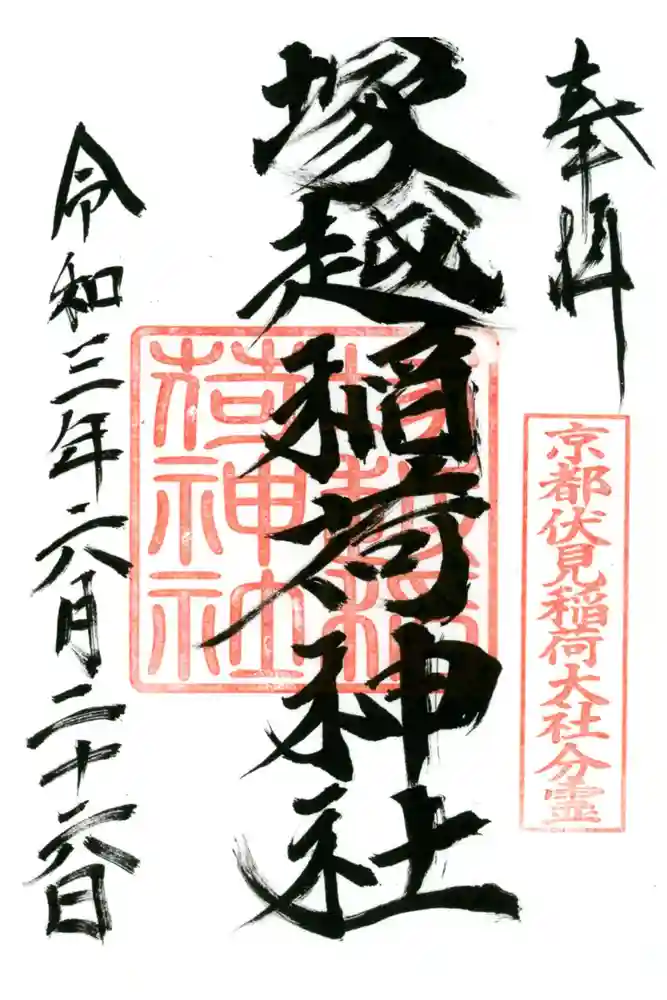 奉拝
京都伏見稲荷大社分霊
塚越稲荷神社
塚越稲荷神社
令和三年六月二十六日